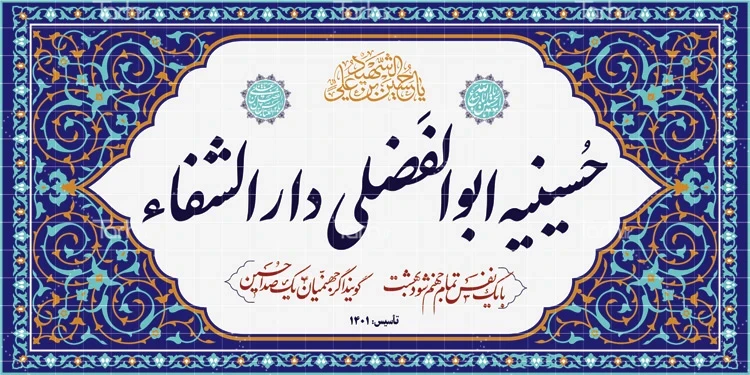 یا حسین بن علی الشهید
حُسینیه ابوالفَضلی دارالشفاء
با یک نفس تمام جهنم شود بهشت گویند اگر جهنمیان یک صدا حسین
تاسیس: ۱۴۰۱